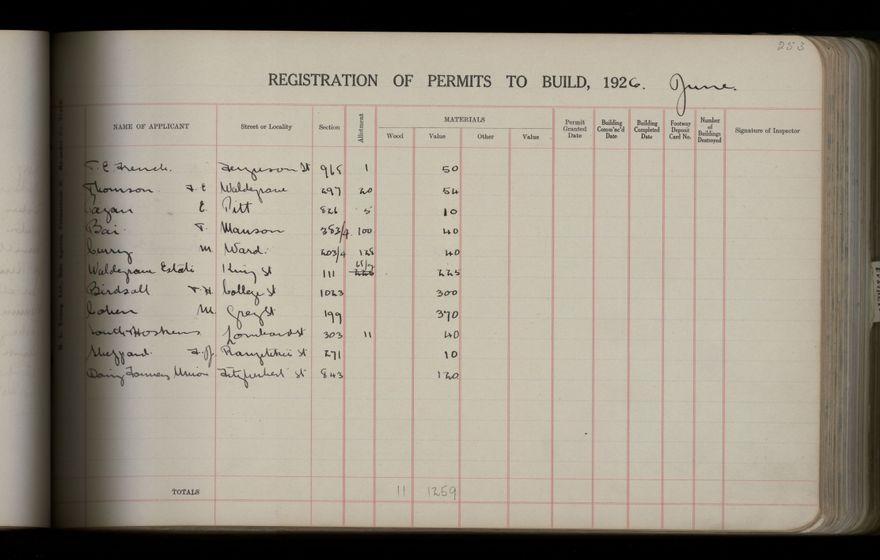 253
REGISTRATION OF PERMITS TO BUILD, 1926. June.
NAME OF APPLICANT Street or Locality Section Allotment MATERIALS Permit Granted Date Building Comm'nc'd Date Building Completed Date Footway Deposit Card No. Number of Buildings Destroyed Signature of Inspector
Wood Value Other Value
T. E. French. Ferguson St 965 1 50
Thomson F. E Waldegrave 297 20 54
E. Pitt 826 5 10
Bai T. Manson 383/4 100 40
Curry M Ward. 203/4 128 40
Waldegrave Estate King St 111 225
Birdsall T. H College St 1023 300
Cohen M. Grey St 199 370
Hoskens Lombard St 303 11 40
Sheppard. F. J. Rangitikei St 271 10
Dairy Farmers Union Fitzherbert St 843 120
TOTALS 11 1259